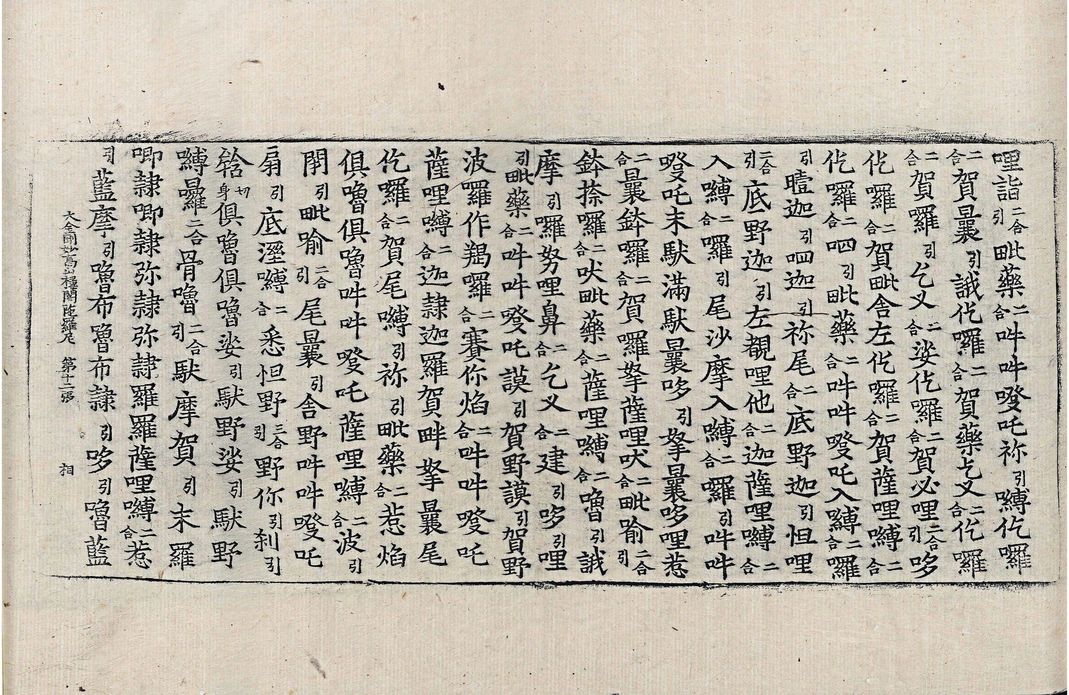 哩詣引二合毗藥二合吽吽發吒祢引嚩仡囉
二合賀曩引誐仡囉二合賀藥乞叉二合仡囉
二合賀囉引乞叉二合娑仡囉二合賀必哩二合引哆
仡囉二合賀毗舍左仡囉二合賀薩哩嚩二合
仡囉二合呬毗藥二合吽吽發吒入嚩二合囉
引曀迦引呬迦引祢尾二合底野迦引怛哩
二合引底野迦引左覩哩他二合迦薩哩嚩二合
入嚩二合囉引尾沙摩入嚩二合囉引吽吽
發吒末馱滿馱曩哆引拏曩哆哩惹
二合曩鉢囉二合賀囉拏薩哩吠二合毗喻二合引
鉢捺囉二合吠毗藥二合薩哩嚩二合嚕引誐
摩引囉努哩鼻二合乞叉二合建引哆引哩
引毗藥二合吽吽發吒謨引賀野謨引賀野
波囉作羯囉二合賽你焰二合吽吽發吒
薩哩嚩二合迦隷迦羅賀畔拏曩尾
仡囉二合賀尾嚩引祢引毗藥二合惹焰
俱嚕俱嚕吽吽發吒薩哩嚩二合波引
閉引毗喻二合引尾曩引舍野吽吽發吒
扇引底溼嚩二合悉怛野三合引野你引刹引
𦚾身切俱嚕俱嚕娑引馱野娑引馱野
嚩曩二合骨嚕二合引馱摩賀引末羅
唧隷唧隷弥隷弥隷羅羅薩哩嚩二合惹
引藍摩引嚕布嚕布隷引哆引嚕藍
大金剛妙高山樓閣陁羅尼 第十二張 相